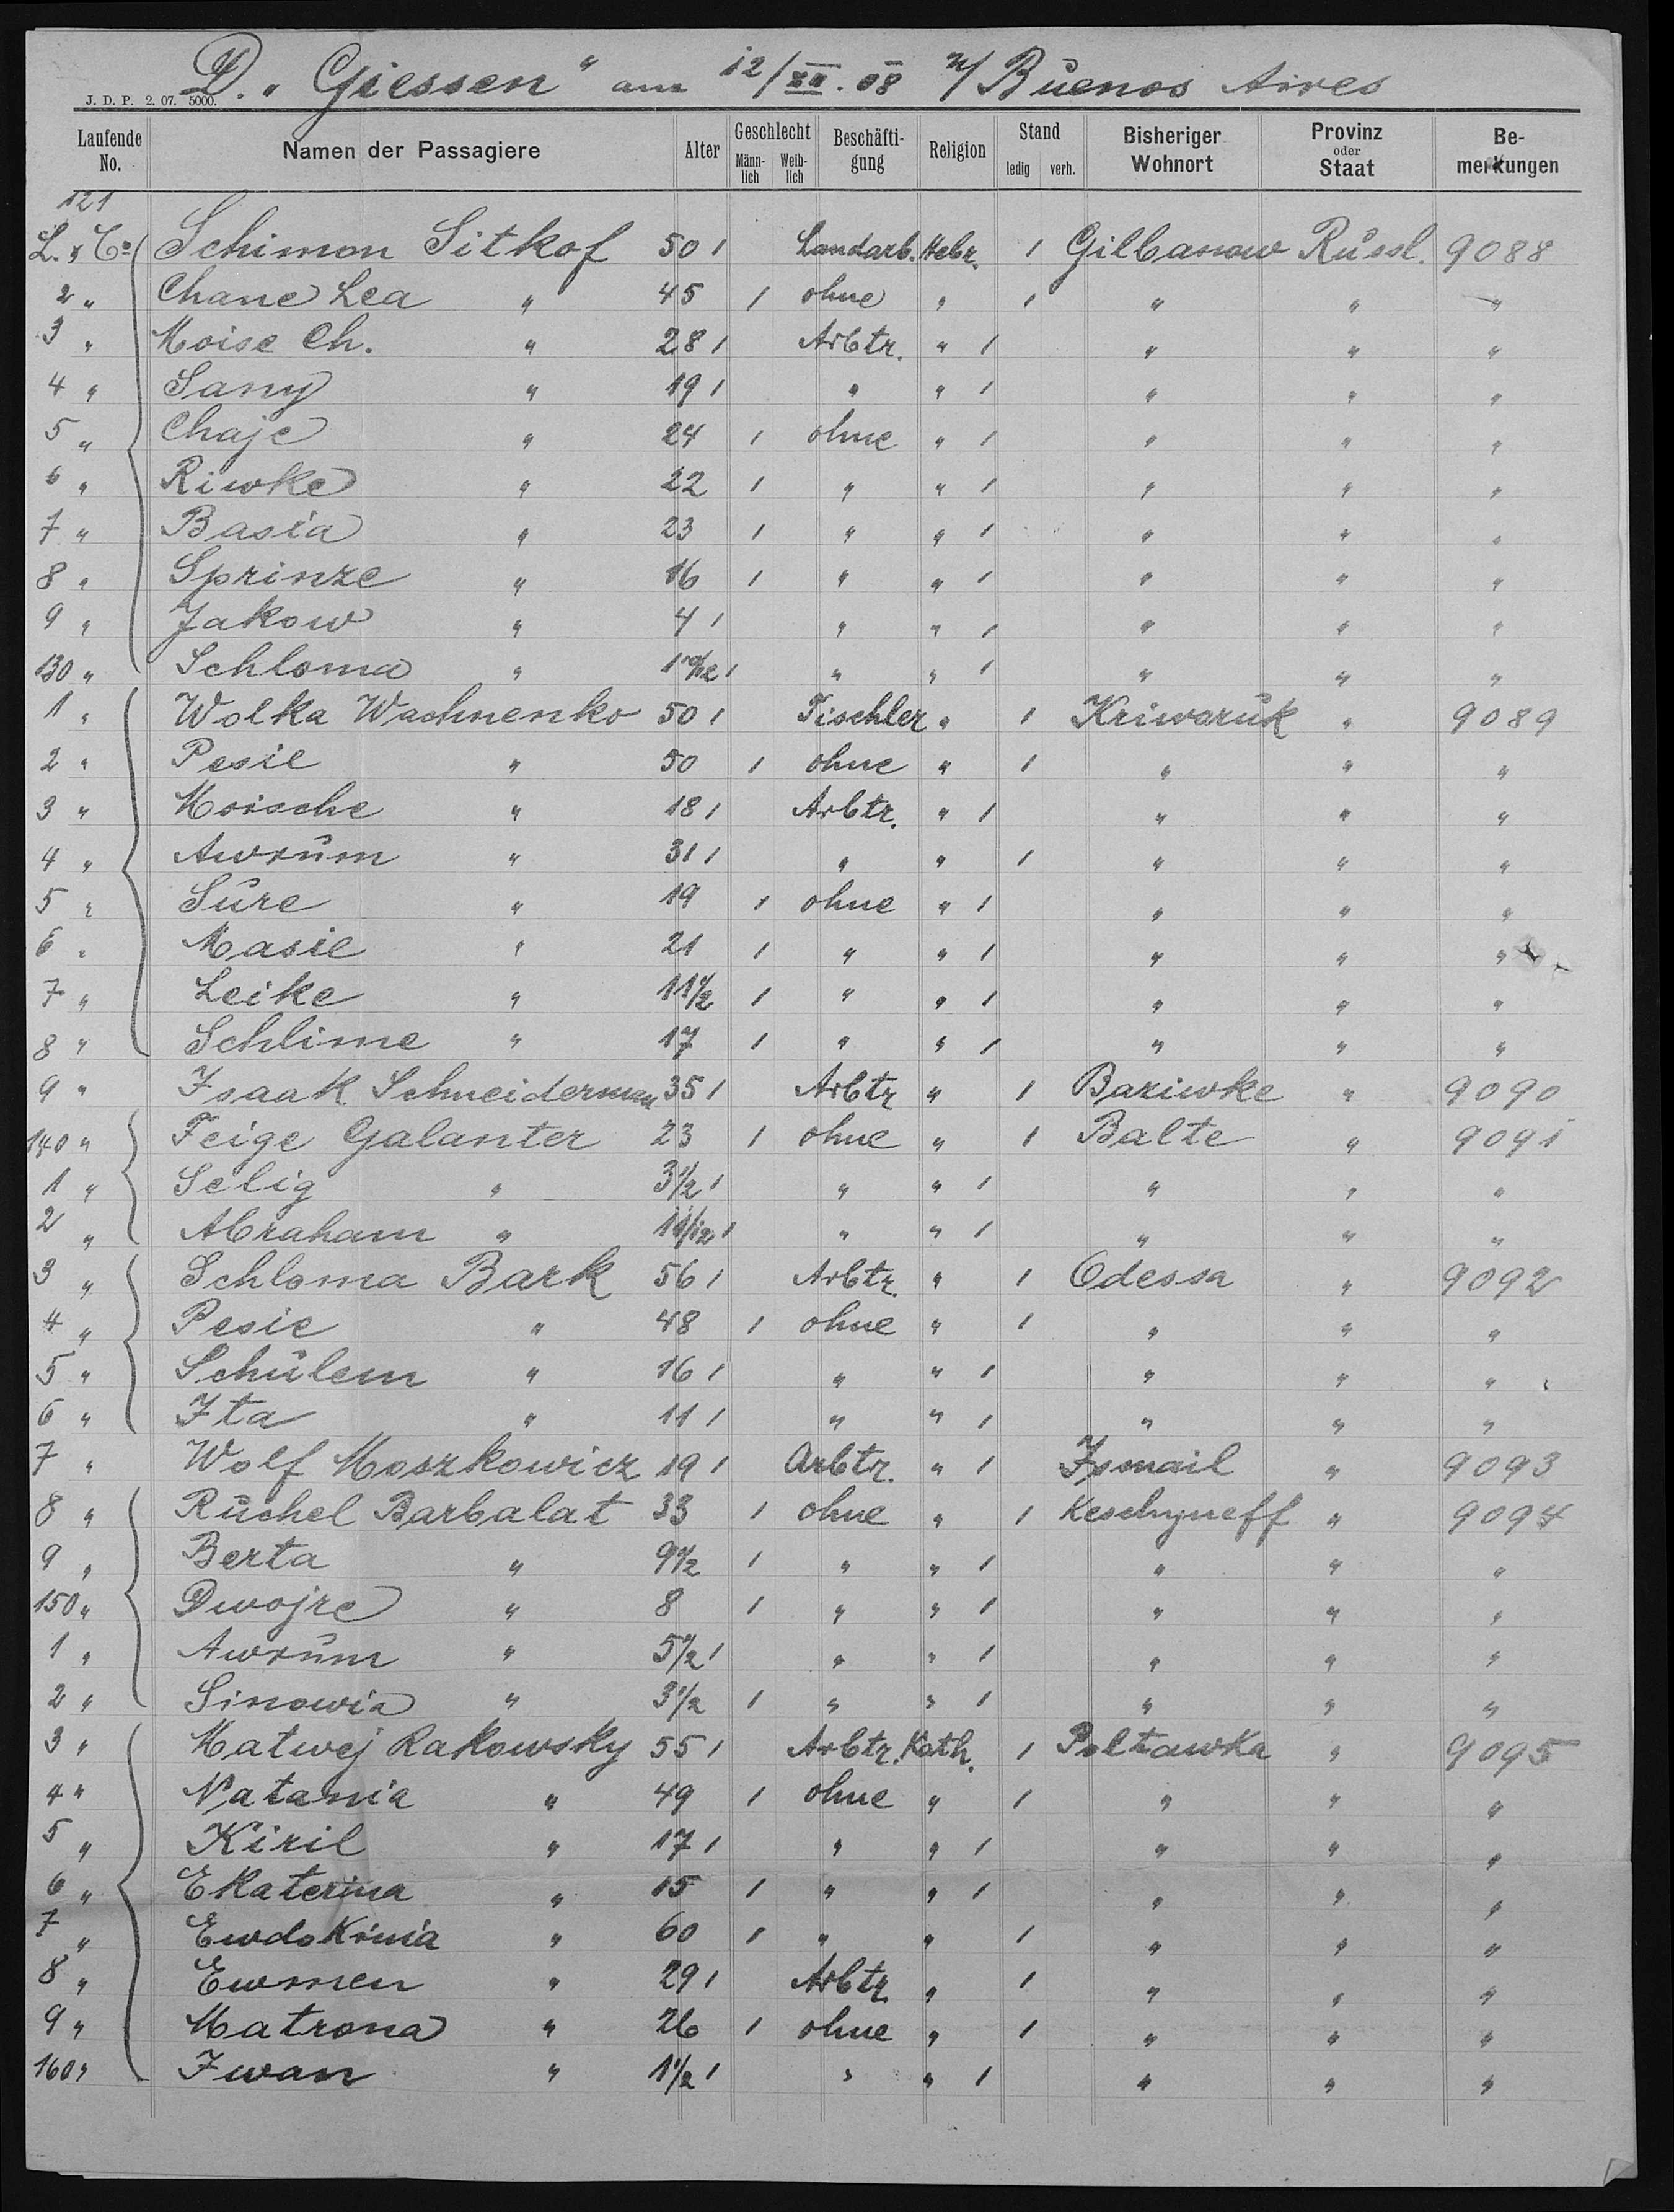 D. „Giessen" am 12/XII. 08 n/ Buenos Aires
J. D. P. 2. 07. 5000.
Laufende No. Namen der Passagiere Alter Geschlecht Männ-lich Weib-lich Beschäfti-gung Religion Stand ledig verh. Bisheriger Wohnort Provinz oder Staat Be-merkungen
121
L. & Co Schimon Sitkof 50 / Landarb. Hebr. / Gilbanow Russl. 9088
2 " Chane Lea " 45 / ohne " / " " "
3 " Moise Ch. " 28 / Arbtr. " / " " "
4 " Sany " 19 / " " / " " "
5 " Chaje " 24 / ohne " / " " "
6 " Riwke " 22 / " " / " " "
7 " Basia " 23 / " " / " " "
8 " Sprinze " 16 / " " / " " "
9 " Jakow " 4 / " " / " " "
130 " Schloma " 1 10/12 / " " / " " "
1 " Wolka Wachnenko 50 / Tischler " / Kriwozuk " 9089
2 " Pesie " 50 / ohne " / " " "
3 " Moische " 18 / Arbtr. " / " " "
4 " Awrum " 31 / " " / " " "
5 " Sure " 19 / ohne " / " " "
6 " Masie " 21 / " " / " " "
7 " Leike " 11 1/2 / " " / " " "
8 " Schlime " 17 / " " / " " "
9 " Isaak Schneiderman 35 / Arbtr " / Baziwke " 9090
140 " Feige Galanter 23 / ohne " / Balte " 9091
1 " Selig " 3 1/2 / " " / " " "
2 " Abraham " 11/12 / " " / " " "
3 " Schloma Bark 56 / Arbtr. " / Odessa " 9092
4 " Pesie " 48 / ohne " / " " "
5 " Schulem " 16 / " " / " " "
6 " Ita " 11 / " " / " " "
7 " Wolf Moszkowicz 19 / Arbtr. " / Ismail " 9093
8 " Ruchel Barbalat 33 / ohne " / Keschyneff " 9094
9 " Berta " 9 1/2 / " " / " " "
150 " Dwojre " 8 / " " / " " "
1 " Awrum " 5 1/2 / " " / " " "
2 " Sinowia " 3 1/2 / " " / " " "
3 " Matwej Rakowsky 55 / Arbtr. Kath. / Poltawka " 9095
4 " Natania " 49 / ohne " / " " "
5 " Kiril " 17 / " " / " " "
6 " Ekaterina " 15 / " " / " " "
7 " Ewdokimia " 60 / " " / " " "
8 " Ewmen " 29 / Arbtr " / " " "
9 " Matrona " 26 / ohne " / " " "
160 " Iwan " 1 1/2 / " " / " " "